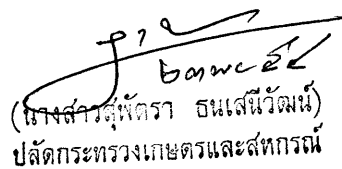 (นางสาวสุพัตรา ธนเสนีวัฒน์)
ปลัดกระทรวงเกษตรและสหกรณ์